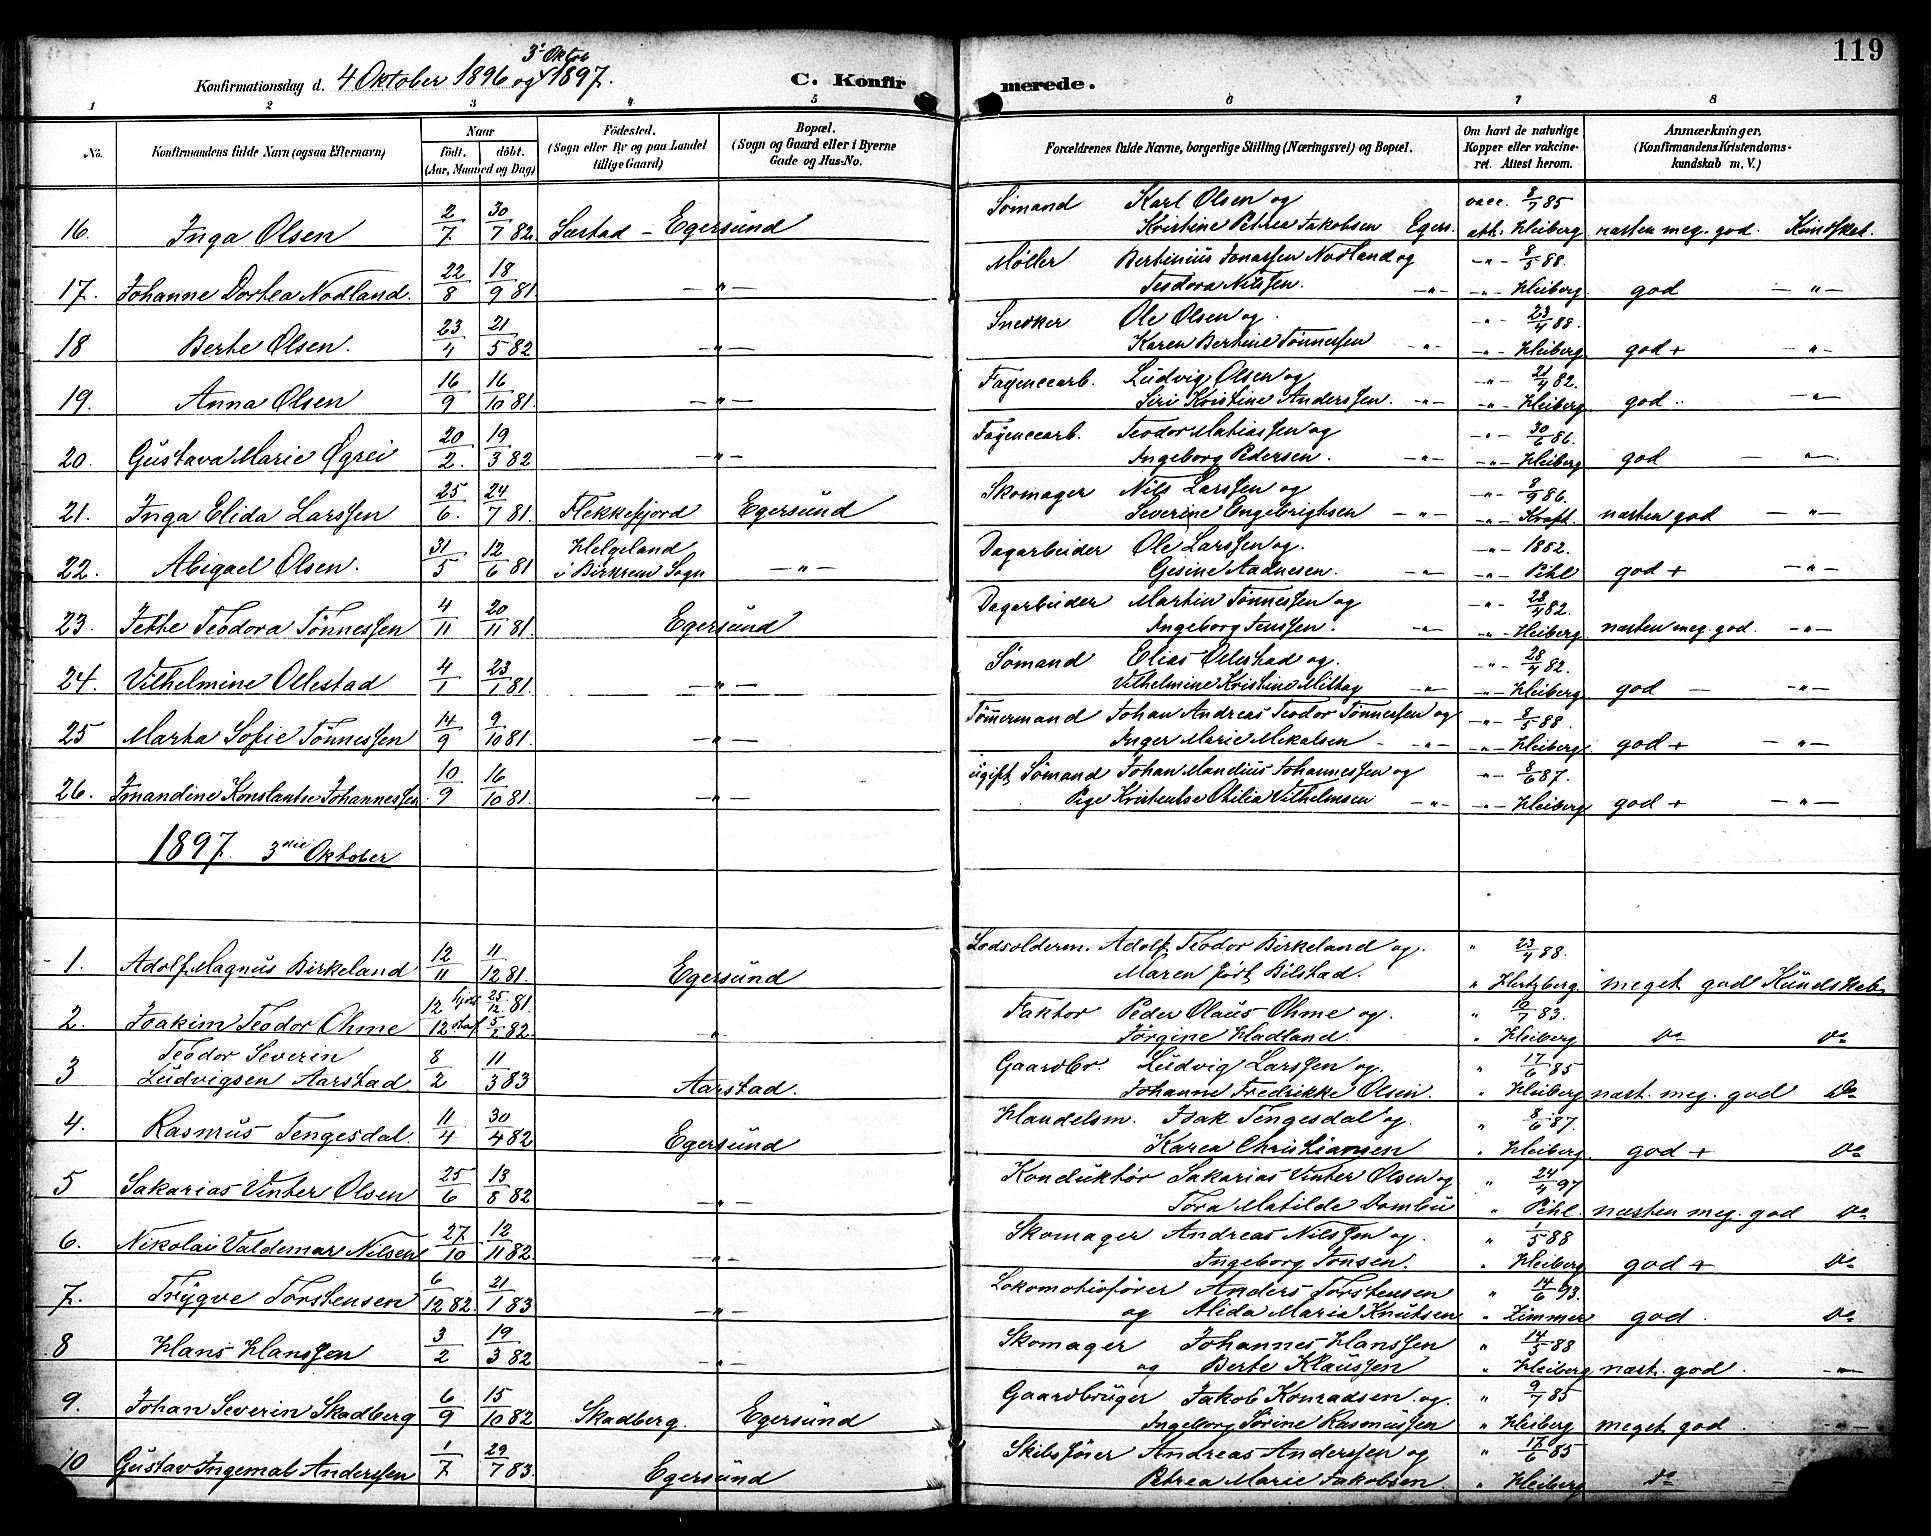 119
3' Oktob
Konfirmationsdag d. 4 Oktober 1896 og 1897. C. Konfirmerede.
1 2 3 4 5 6 7 8
No. Konfirmandens fulde Navn (ogsaa Efternavn) Naar født. døbt. (Aar, Maaned og Dag) Fødested. (Sogn eller By og paa Landet tillige Gaard) Bopæl. (Sogn og Gaard eller i Byerne Gade og Hus-No. Forældrenes fulde Navne, borgerlige Stilling (Næringsvei) og Bopæl. Om havt de naturlige Kopper eller vakcineret. Attest herom. Anmærkninger. (Konfirmandens Kristendomskundskab m. V.)
Sømand Karl Olsen og vacc. 8/7 85
16. Inga Olsen 2/7 30/7 82. Sæstad - Egersund Kristine Petrea Jakobsen Egers. att. Heiberg næsten meg. god. Kundskab.
Møller Bertinius Jonassen Nodland og -"- 8/5 88.
17. Johanne Dortea Nodland. 22/8 18/9 81 -"- Teodora Nilssen. -"- -"- Heiberg god -"-
Snedker Ole Olsen og -"- 23/4 88.
18 Berte Olsen. 23/4 21/5 82 -"- Karen Bertine Tønnessen -"- -"- Heiberg god + -"-
Fayencearb. Ludvig Olsen og -"- 21/4 82.
19. Anna Olsen 16/9 16/10 81. -"- Siri Kristine Anderssen. -"- -"- Heiberg god. -"-
Fayencearb. Teodor Matiassen og -"- 30/6 86.
20. Gustava Marie Øgrei 20/2. 19/3 82 -"- Ingeborg Pedersen. -"- -"- Heiberg god -"-
Skomager Nils Larssen og -"- 8/9 86.
21. Inga Elida Larssen 25/6. 24/7 81. Flekkefjord Egersund Severine Engebrigtsen -"- -"- Kraft. næsten god -"-
Dagarbeider Ole Larssen og. -"- 1882.
22. Abigael Olsen. 31/5 12/6 81 Helgeland i Birkrem Sogn -"- Gesine Aadnesen. -"- -"- Pihl god + -"-
Dagarbeider Martin Tønnessen og -"- 28/4 82.
23. Jette Teodora Tønnessen 4/11 20/11 81. Egersund Ingeborg Jenssen. -"- -"- Heiberg næsten meg. god. -"-
Sømand Elias Ollestad og. -"- 28/4 82.
24. Vilhelmine Ollestad 4/1 23/1 81. -"- Vilhelmine Kristine Mittag -"- -"- Heiberg god -"-
Tømmermand Johan Andreas Teodor Tønnessen og -"- 8/5 88.
25 Marta Sofie Tønnessen 14/9 9/10 81. -"- Inger Marie Mikalsen -"- -"- Heiberg god + -"-
ugift Sømand Johan Mandius Johannessen og -"- 8/6 87.
26. Imandine Konstantse Johannessen. 10/9 16/10 81. -"- Pige Kristentse Otilia Vilhelmsen -"- -"- Heiberg god + -"-
1897. 3die Oktober
Lodsolderm. Adolf Teodor Birkeland og. " 23/4 88.
1. Adolf Magnus Birkeland 12/11 11/12 81. Egersund Maren født Bilstad. " Hertzberg meget god Kundskab
Faktor Peder Olaus Ohme og. " 10/7 83.
2. Joakim Teodor Ohme 12 12 25/12 81 5/2 82. " Jørgine Hadland. " Heiberg Do Do
Gaardbr. Ludvig Larssen og. " 17/6 85
3 Teodor Severin Ludvigsen Aarstad. 8/2 11/3 83 Aarstad. Johanne Fredrikke Olsen. " Heiberg næst. meg. god Do
Handelsm. Isak Tengesdal og. " 8/6 87.
4. Rasmus Tengesdal. 11/4 30/4 82 Egersund Karen Christiansen " Heiberg god + Do
Konduktør Sakarias Vinter Olsen og " 24/4 97
5 Sakarias Vinter Olsen 25/6 13/8 82 -"- Tora Matilde Dombu " Pihl. næsten meg. god Do
Skomager Andreas Nilssen og. " 1/5 88
6. Nikolai Valdemar Nilsen 27/10 12/11 82. -"- Ingeborg Jonsen. " Heiberg god + Do
Lokomotivfører Anders Torstensen " 14/6 93.
7. Trygve Torstensen 6/12 82. 21/1 83 -"- og Alida Maria Knutsen " Zimmer god. Do
Skomager Johannes Hanssen " 14/5 88
8 Hans Hanssen 3/2 19/3 82 -"- og Berte Klaussen " Heiberg næst. god. -"-
Gaardbruger Jakob Konradsen og. " 9/7 85
9. Johan Severin Skadberg 6/9 15/10 82 Skadberg. Egersund Ingeborg Sørine Rasmussen " Heiberg meget god. -"-
Skibsfører Andreas Anderssen og " 17/6 85
10 Gustav Ingemat Anderssen 1/7 29/7 83. Egersund Petrea Marie Jakobsen. " Heiberg Do